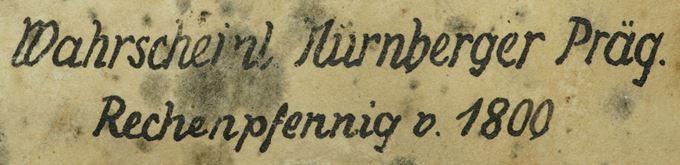 Wahrscheinl. Nürnberger Präg.
Rechenpfennig v. 1800